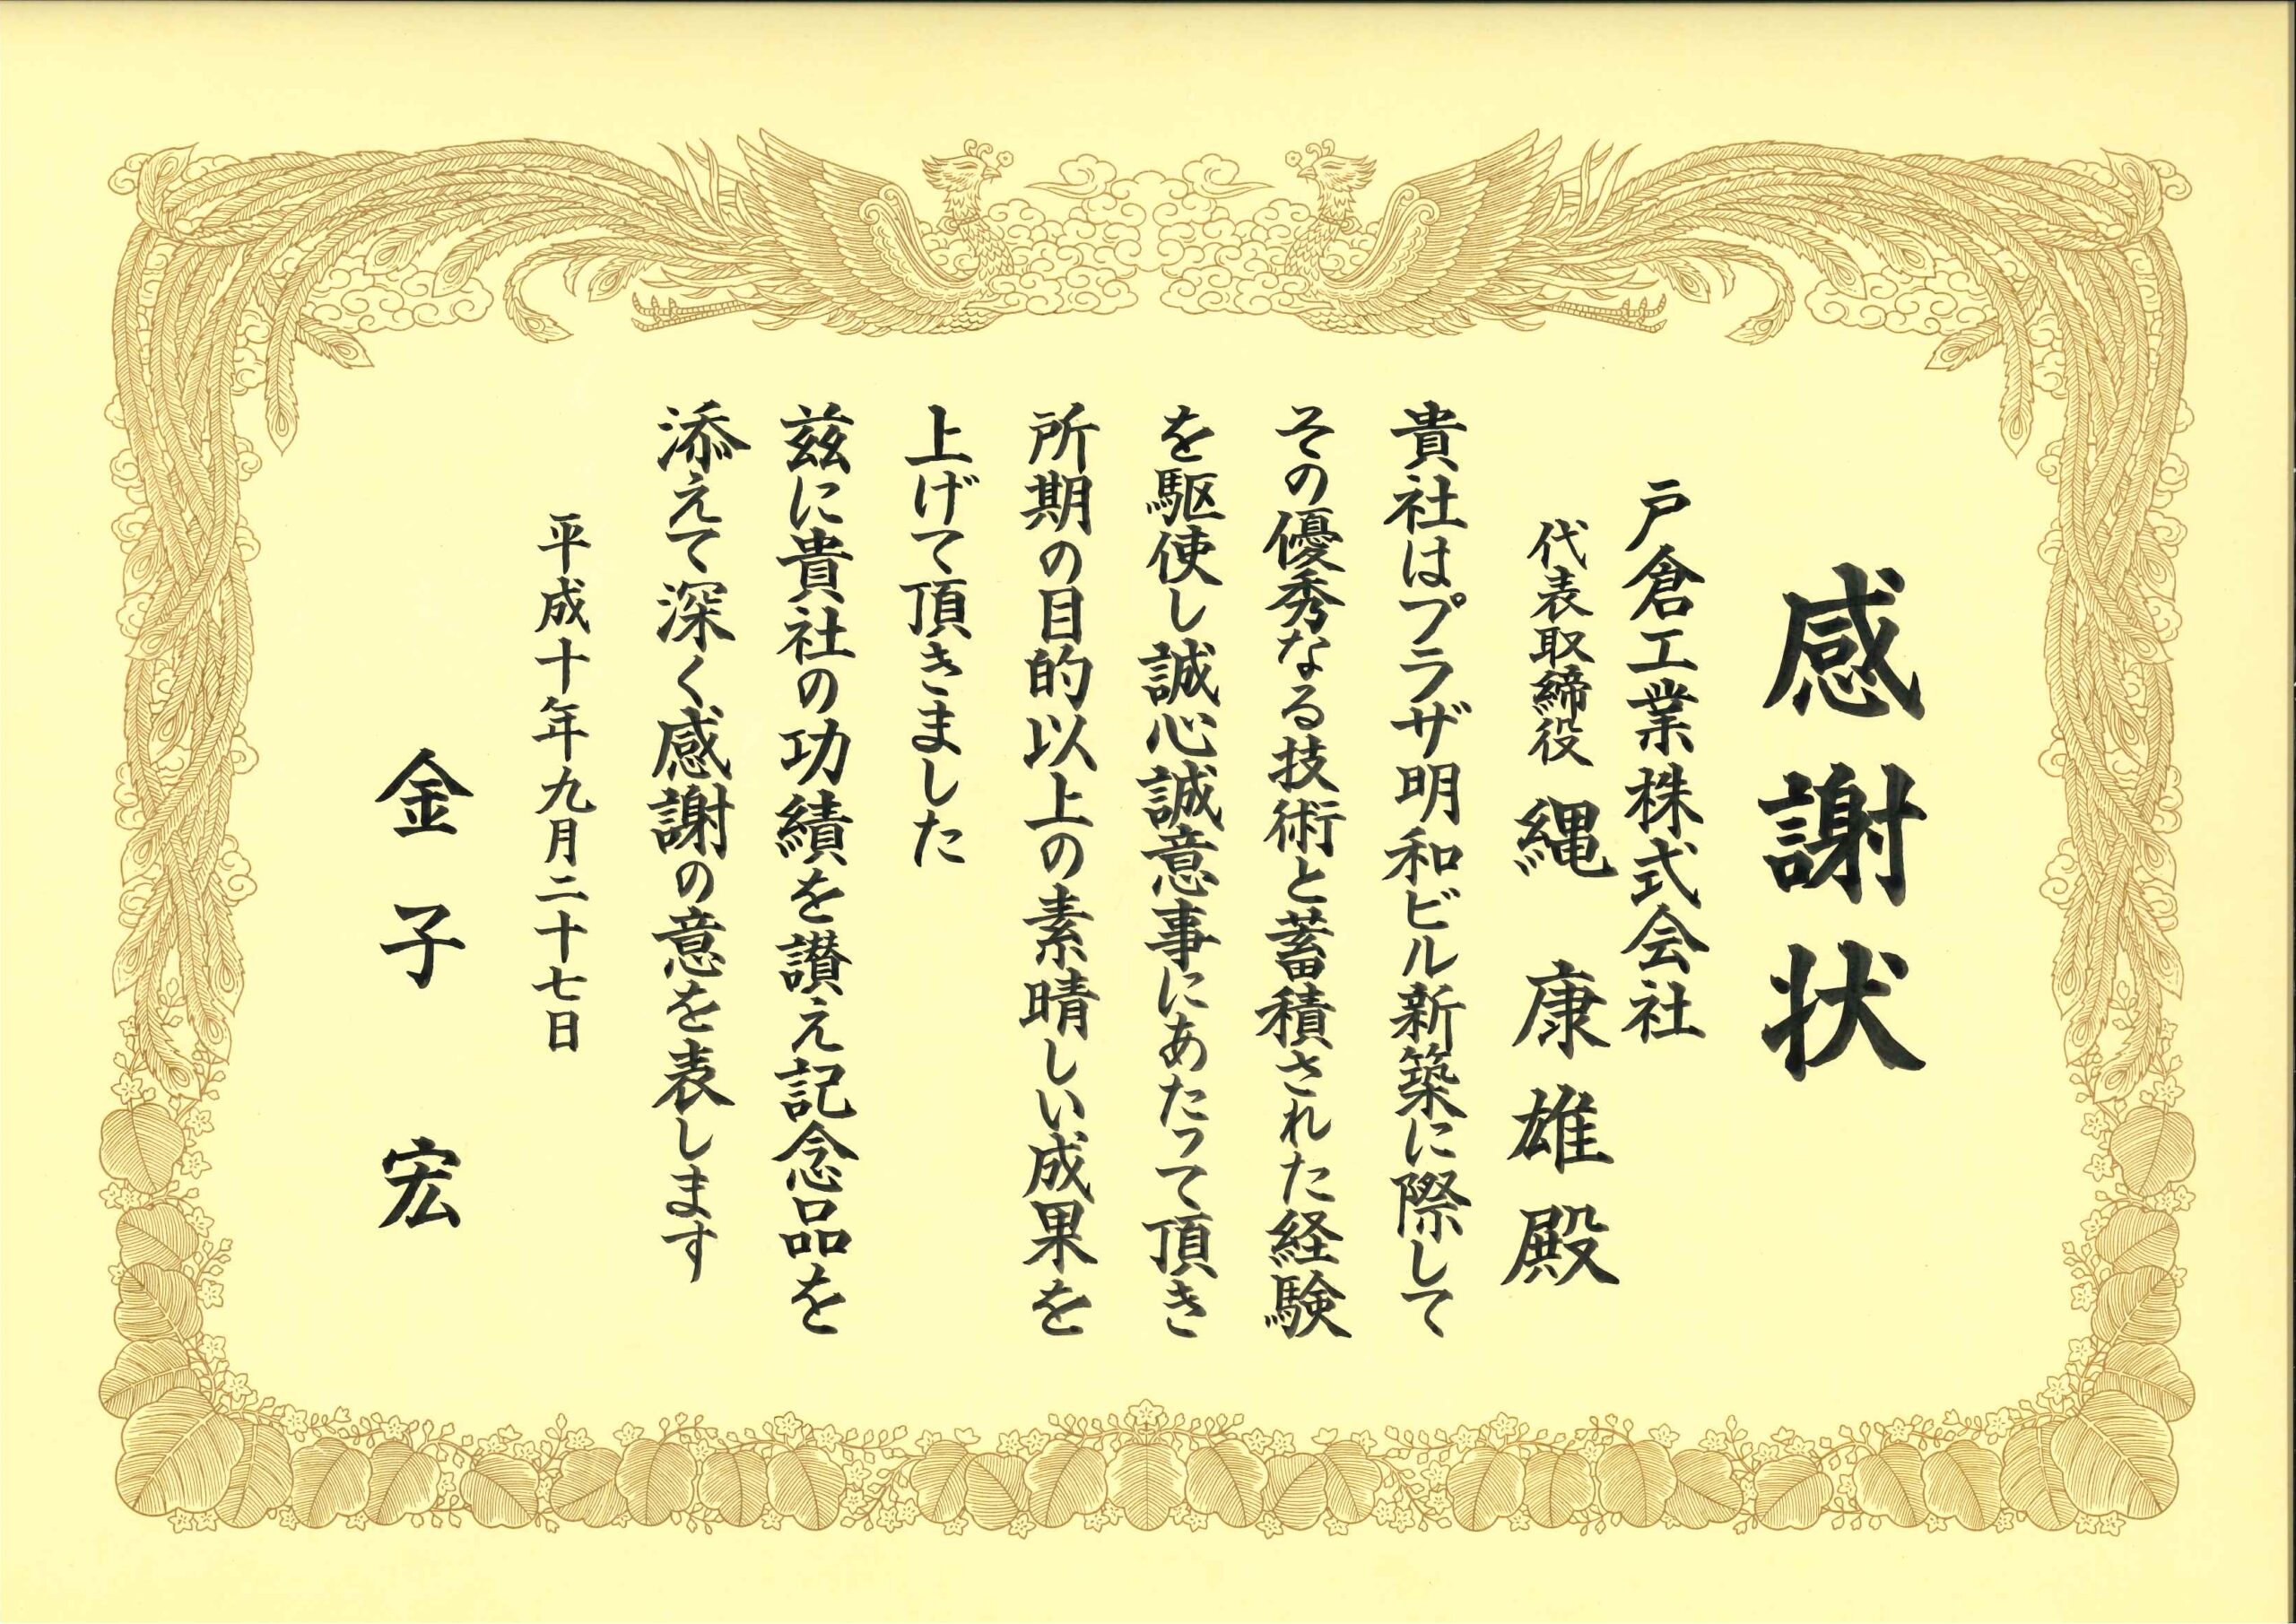 感謝状
戸倉工業株式会社
代表取締役 縄 康雄殿
貴社はプラザ明和ビル新築に際して
その優秀なる技術と蓄積された経験
を駆使し誠心誠意事にあたって頂き
所期の目的以上の素晴しい成果を
上げて頂きました
茲に貴社の功績を讃え記念品を
添えて深く感謝の意を表します
平成十年九月二十七日
金子 宏